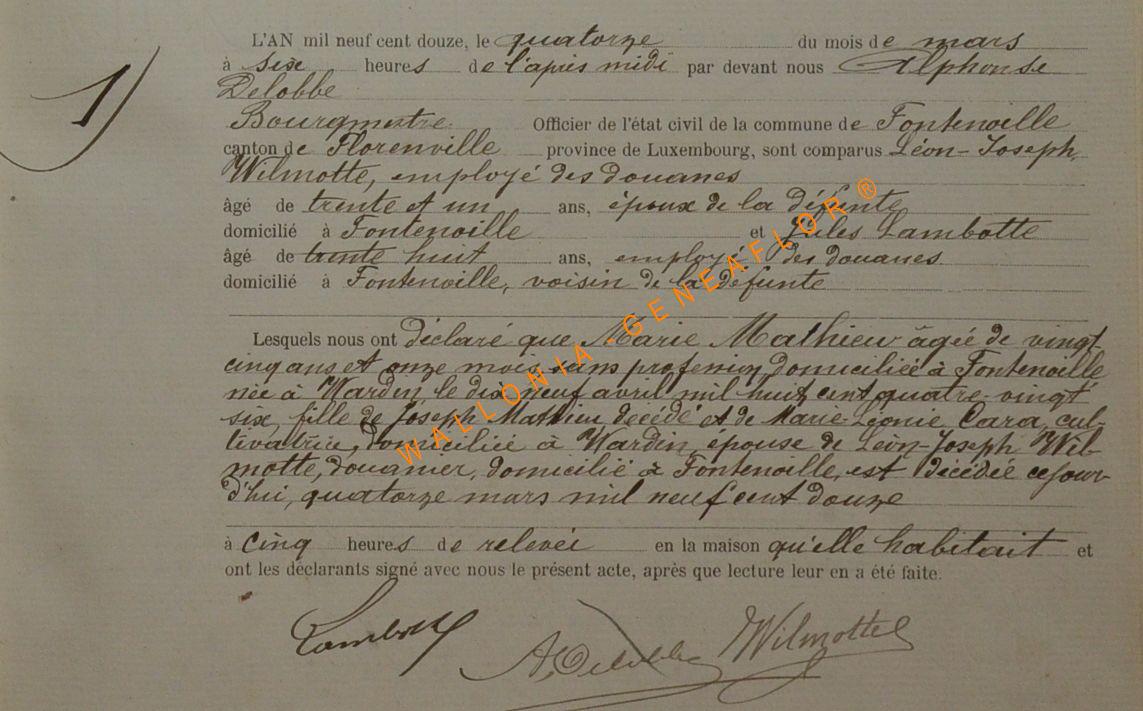 1)
L'AN mil neuf cent douze, le quatorze du mois de mars
à six heures de l'après midi par devant nous Alphonse
Delobbe
Bourgmestre Officier de l'état civil de la commune de Fontenoille
canton de Florenville province de Luxembourg, sont comparus Léon-Joseph
Wilmotte, employé des douanes
âgé de trente et un ans, époux de la défunte
domicilié à Fontenoille et Jules Lambotte
âgé de trente huit ans, employé des douanes
domicilié à Fontenoille, voisin de la défunte
Lesquels nous ont déclaré que Marie Mathieu âgée de vingt
cinq ans et onze mois, sans profession, domiciliée à Fontenoille
née à Wardin, le dix neuf avril mil huit cent quatre-vingt
six, fille de Joseph Mathieu décédé et de Marie-Léonie Cara, cul-
tivatrice, domiciliée à Wardin, épouse de Léon-Joseph Wil-
motte, douanier, domicilié à Fontenoille, est décédée ce jour-
d'hui, quatorze mars mil neuf cent douze
à cinq heures de relevée en la maison qu'elle habitait et
ont les déclarants signé avec nous le présent acte, après que lecture leur en a été faite.
Lambotte
A. Delobbe
Wilmotte
WALLONIA-GENEAFLOR®